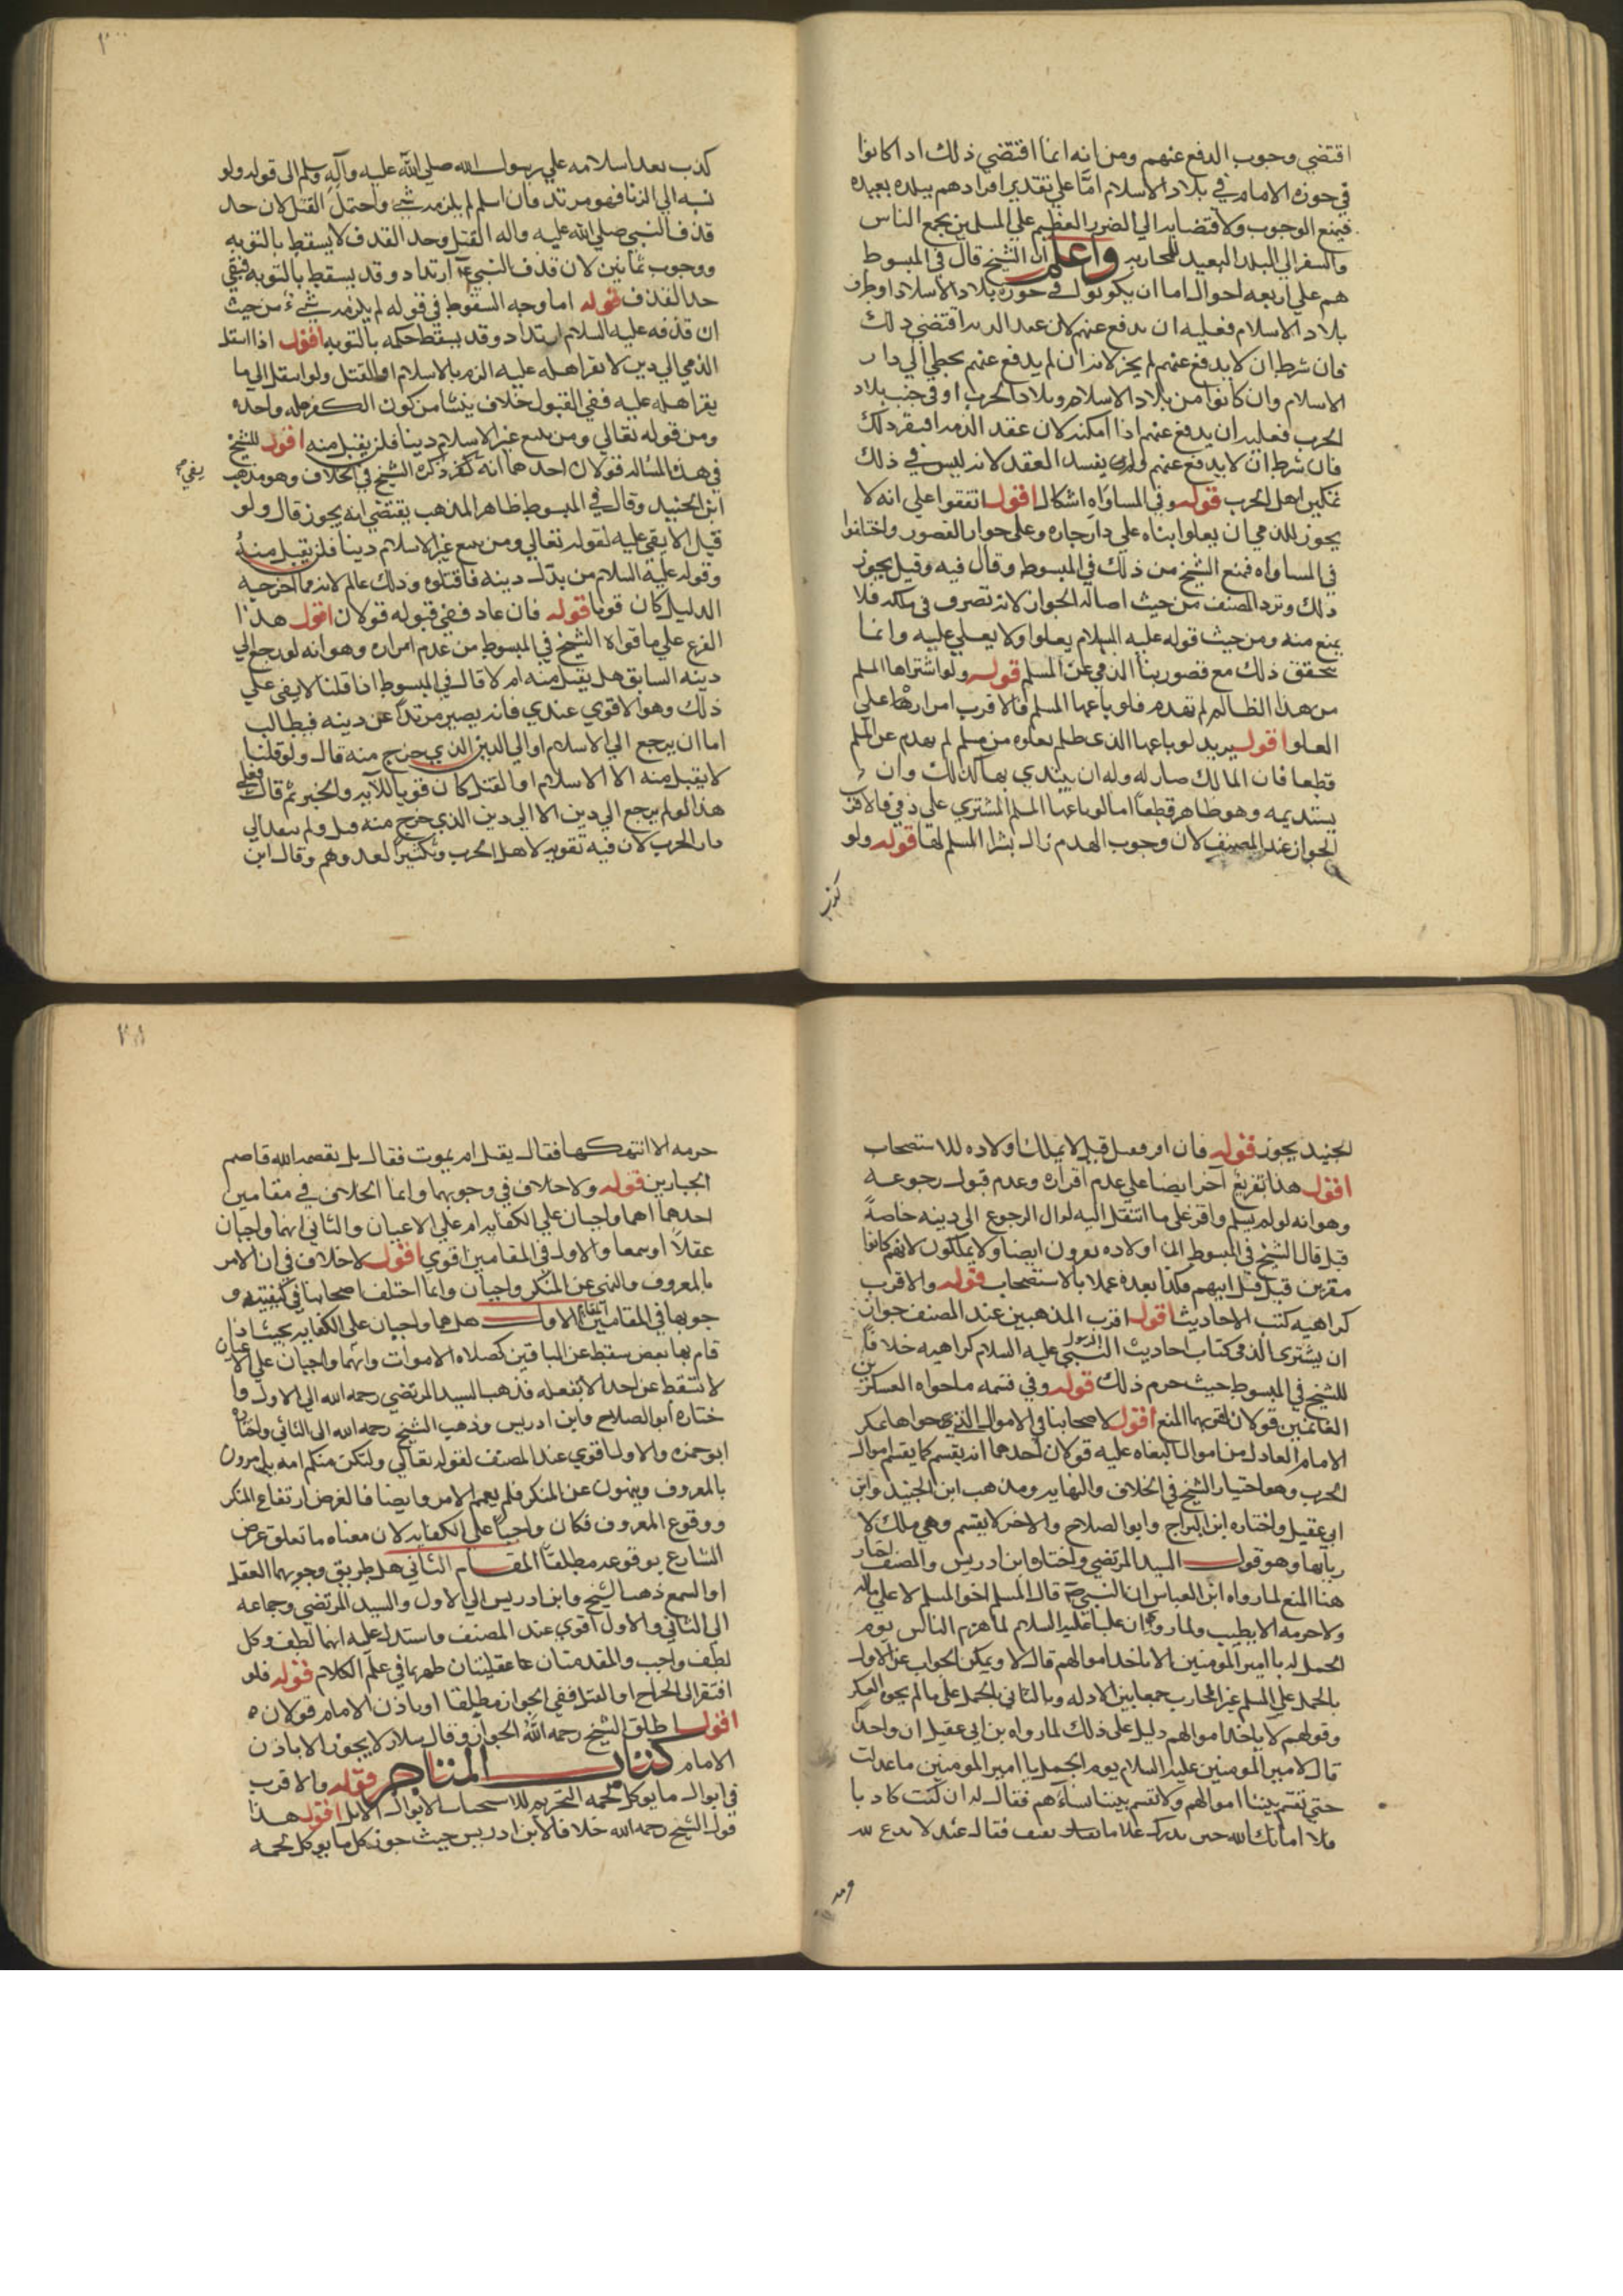 اقتضي وجوب الدفع عنهم ومن انه انما اقتضي ذلك اذا كانوا
في حوزه الامام في بلاد الاسلام امّا علي تقدير افرادهم ببلده بعيده
فيمنع الوجوب ولاقتضايه الي الضرر العظيم علي المسلمين بجمع الناس
والسفر الي البلد البعيد للمحاربه واعلم ان الشيخ قال في المبسوط
هم علي اربعه احوال اما ان يكونوا في حوزه بلاد الاسلام او طرف
بلاد الاسلام فعليه ان يدفع عنهم لان عقد الذمه اقتضي ذلك
فان شرط ان لا يدفع عنهم لم يجز لانه ان لم يدفع عنهم يخطي الي دار
الاسلام وان كانوا من بلاد الاسلام وبلاد الحرب او في جنب بلاد
الحرب فعليه ان يدفع عنهم اذا امكنه لان عقد الذمه اقتضي ذلك
فان شرط ان لا يدفع عنهم لم يفسد العقد لانه ليس في ذلك
تمكين اهل الحرب قوله وفي المساواه اشكال اقول اتفقوا علي انه لا
يجوز للذمي ان يعلوا بناه علي دار جاره وعلي جواز القصور واختلفوا
في المساواه فمنع الشيخ من ذلك في المبسوط وقال فيه وقيل يجوز
ذلك وتردد المصنف من حيث اصاله الجواز لانه تصرف في ملكه فلا
يمنع منه ومن حيث قوله عليه السلام يعلوا ولا يعلي عليه وانما
يتحقق ذلك مع قصور بنا الذمي عن المسلم قوله ولو اشتراها المسلم
من هذا الظالم لم تهدم فلو باعها المسلم فالاقرب امرارها علي
العلو اقول يريد لو باعها الذي ظلم بعلوه من مسلم لم يهدم عن المسلم
قطعا فان المالك صار له وله ان يبتدي بها كذلك وان
يستديمه وهو ظاهر قطعاً اما لو باعها المسلم المشتري علي ذمي فالاقرب
الجواز عند المصنف لان وجوب الهدم زال بشرا المسلم لها قوله ولو
كذب
كذب بعد اسلامه علي رسول الله صلي الله عليه وآله وسلم الي قوله ولو
نسبه الي الزنا فهو مرتد فان اسلم لم يلزمه شي واحتمل القتل لان حد
قذف النبي صلي الله عليه واله القتل وحد القذف لا يسقط بالتوبه
ووجوب ثمانين لان قذف النبي ارتداد وقد يسقط بالتوبه فبقي
حد القذف قوله اما وجه السقوط في قوله لم يلزمه شيء من حيث
ان قذفه عليه السلام ارتداد وقد يسقط حكمه بالتوبه اقول اذا انتقل
الذمي الي دين لا يقر اهله عليه الزم بالاسلام او القتل ولو انتقل الي ما
يقر اهله عليه ففي القبول خلاف ينشا من كون الكفر مله واحده
ومن قوله تعالي ومن يبتغ غير الاسلام دينا فلن يقبل منه اقول للشيخ
في هذه المساله قولان احدهما انه ذكره الشيخ في الخلاف وهو مذهب
ابن الجنيد وقال في المبسوط ظاهر المذهب يقتضي انه يجوز قال ولو
قيل لا يقر عليه لقوله تعالي ومن يبتغ غير الاسلام دينا فلن يقبل منه
وقوله عليه السلام من بدّل دينه فاقتلوه وذلك عام الا ما اخرجه
الدليل كان قويا قوله فان عاد ففي قبوله قولان اقول هذا
الفرع علي ما قواه الشيخ في المبسوط من عدم امراره وهو انه لو رجع الي
دينه السابق هل يقبل منه ام لا قال في المبسوط اذا قلنا لا يقر علي
ذلك وهو الاقوي عندي فانه يصير مرتداً عن دينه فيطالب
اما ان يرجع الي الاسلام او الي الدين الذي خرج منه قال ولو قلنا
لا يقبل منه الا الاسلام او القتل كان قويا للآيه والخبر ثم قال فعلي
هذا لو لم يرجع الي دين الا الي دين الذي خرج منه قتل ولم ينفذ الي
دار الحرب لان فيه تقويه لاهل الحرب وتكثيراً لعددهم وقال ابن
الجنيد يجوز قوله فان امر وفعل قيل لا يملك اولاده للاستصحاب
اقول هذا تفريع آخر ايضا علي عدم اقراره وعدم قبول رجوعه
وهو انه لو لم يسلم واقر علي ما انتقل اليه او الي الرجوع الي دينه خاصةً
قيل قال الشيخ في المبسوط ان اولاده يقرون ايضا ولا يملكون لانهم كانوا
مقرين قبل قتل ابيهم فكذا بعده عملا بالاستصحاب قوله والاقرب
كراهيه كتب الاحاديث اقول اقرب المذهبين عند المصنف جواز
ان يشتري الذمي كتاب احاديث النبي الرسول عليه السلام كراهيه خلافاً
للشيخ في المبسوط حيث حرم ذلك قوله وفي قسمه ما حواه العسكر بين
الغانمين قولان اقربهما المنع اقول لاصحابنا في الاموال الذي حواها عسكر
الامام العادل من اموال البغاه عليه قولان احدهما انه يقسم كما يقسم اموال
الحرب وهو اختيار الشيخ في الخلاف والنهايه ومذهب ابن الجنيد وابن
ابي عقيل واختاره ابن البراج وابو الصلاح والاخر لا يقسم وهي ملك لا
ربابها وهو قول السيد المرتضي واختاره ابن ادريس والمصنف اختار
هنا المنع لما رواه ابن العباس ان النبي قال المسلم اخو المسلم لا علي ماله
ولا حرمه الا بطيب ولما روي ان علياً عليه السلام لما هزم الناس يوم
الجمل له يا امير المومنين الا ناخذ اموالهم قال لا ويمكن الجواب عن الاول
بالحمل علي المسلم غير المحارب جمعا بين الادله وبالثاني بالحمل علي ما لم يحوه العسكر
وقولهم لا ياخذ اموالهم دليل علي ذلك لما رواه بن ابي عقيل ان واحداً
قال لامير المومنين عليه السلام يوم الجمل يا امير المومنين ما عدلت
حتي تقسم بيننا اموالهم ولا تقسم بيننا نساءهم فقال له ان كنت كاذبا
فلا اماتك الله حتي تدرك غلام ثقيف فقال عند لا يدع لله
حرمه الا انتهكها فقال يقتل ام يموت فقال بل يقصمه الله قاصم
الجبارين قوله ولا خلاف في وجوبهما وانما الخلاف في مقامين
احدهما اهما واجبان علي الكفايه ام علي الاعيان والثاني انهما واجبان
عقلاً او سمعا والاول في المقامين اقوي اقول لا خلاف في ان الامر
بالمعروف والنهي عن المنكر واجبان وانما اختلف اصحابنا في كيفيته و
جوبها في المقامين المقام الاول هل هما واجبان علي الكفايه بحيث اذا
قام بها بعض سقط عن الباقين كصلاه الاموات وانهما واجبان علي الاعيان
لا تسقط عن احد الا بفعله فذهب السيد المرتضي رحمه الله الي الاول وا
ختاره ابو الصلاح وابن ادريس وذهب الشيخ رحمه الله الي الثاني واختاره
ابو حمزه والاول اقوي عند المصنف لقوله تعالي ولتكن منكم امه يامرون
بالمعروف وينهون عن المنكر فلم يعمم الامر وايضا فالغرض ارتفاع المنكر
ووقوع المعروف فكان واجباً علي الكفايه لان معناه ما تعلق غرض
الشارع بوقوعه مطلقاً المقام الثاني هل طريق وجوبهما العقل
او السمع ذهب الشيخ وابن ادريس الي الاول والسيد المرتضي وجماعه
الي الثاني والاول اقوي عند المصنف واستدل عليه انهما لطف وكل
لطف واجب والمقدمتان عقليتان ظهرتا في علم الكلام قوله فلو
افتقر الي الجراح او القتل ففي الجواز مطلقا او باذن الامام قولان
اقول اطلق الشيخ رحمه الله الجواز وقال سلار لا يجوز الا باذن
الامام كتاب المتاجر قوله والاقرب
في ابوال ما يوكل لحمه التحريم للاستخباث الابوال الابل اقول هذا
قول الشيخ رحمه الله خلافا لابن ادريس حيث جوز كل ما يوكل لحمه